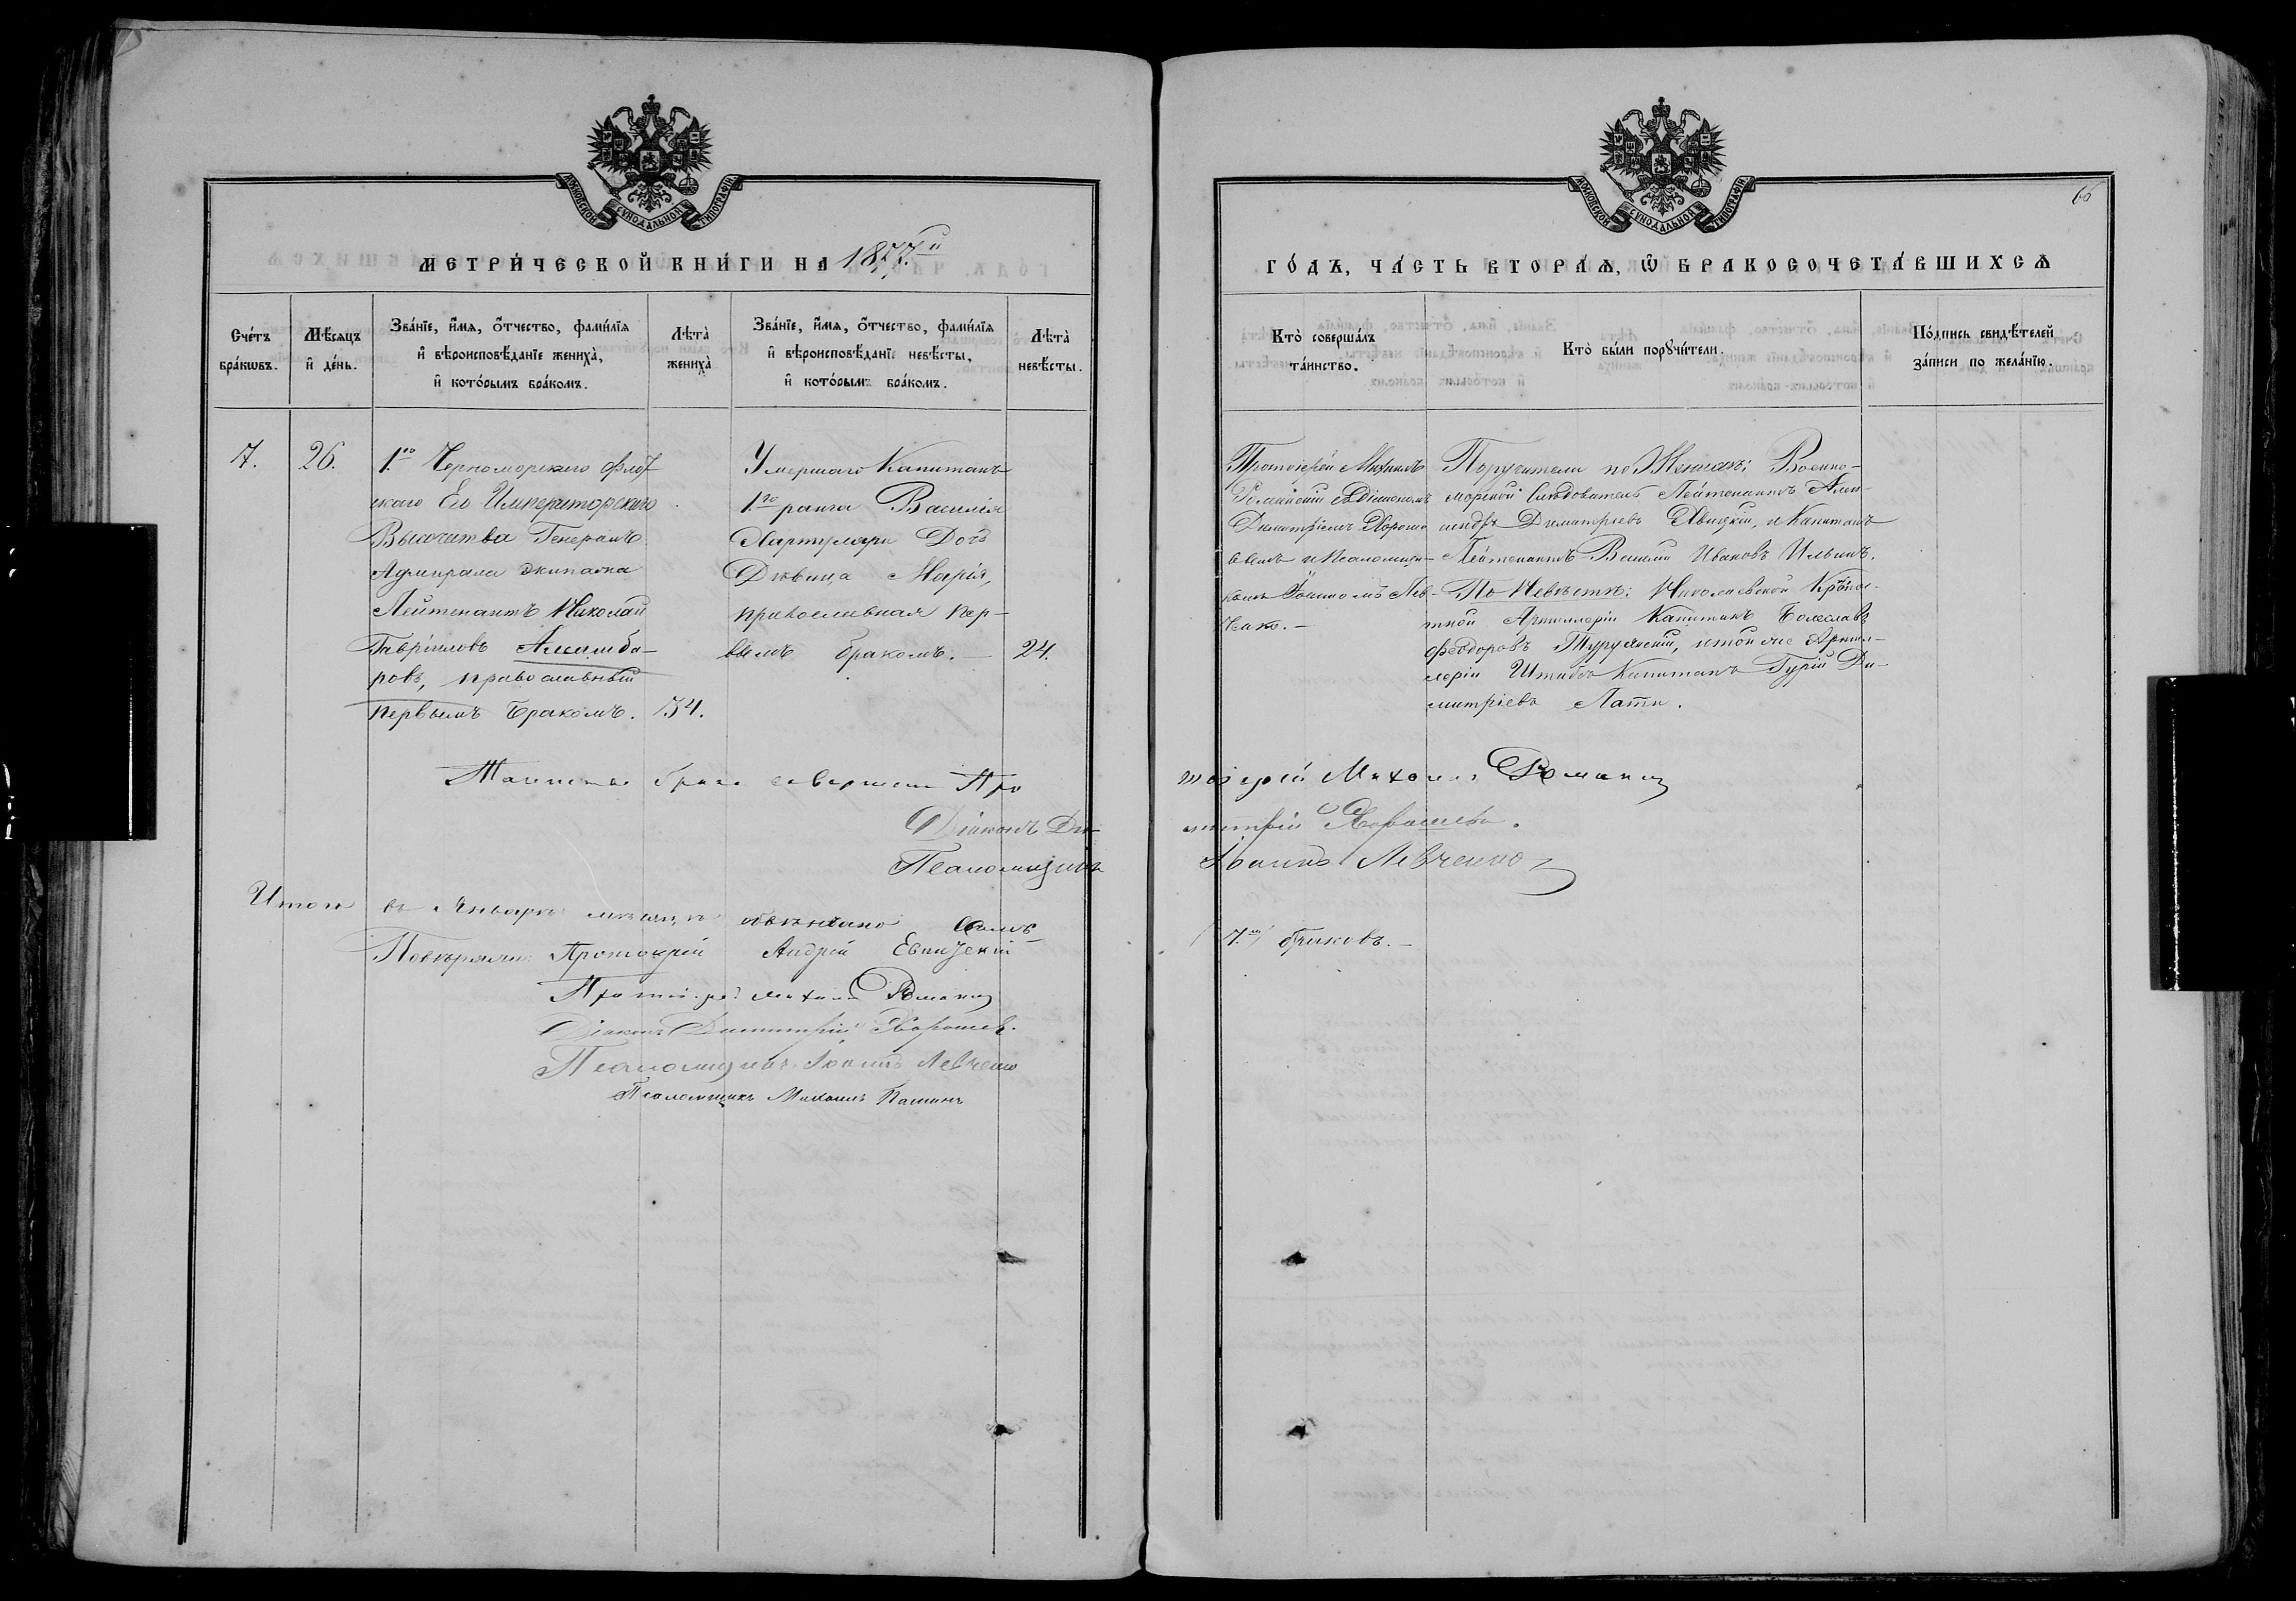 МОСКОВСКОЙ СѴНОДАЛЬНОЙ ТИПОГРАФІИ.
МЕТРИ́ЧЕСКОЙ КНИ́ГИ НА 1877.й
Сче́тъ бра́кωвъ.
Мѣ́сяцъ и҆ де́нь.
Зва́нїе, и҆́мѧ, ѻ҆́тчество, фами́лїѧ
и҆ вѣроисповѣ́данїе жениха̀,
и҆ кото́рымъ бра́комъ.
Лѣта̀ жениха̀
Зва́нїе, и҆́мѧ, ѻ҆́тчество, фами́лїѧ
и҆ вѣроисповѣ́данїе невѣ́сты,
и҆ кото́рымъ бра́комъ.
Лѣта̀ невѣ́сты.
7.
26.
1.го Черноморскаго флот
скаго Его Императорскаго
Высочества Генералъ
Адмирала экипажа
Лейтенантъ Николай
Гавріиловъ
ровъ, православный
первымъ бракомъ. 34.
Умершаго Капитана
1го ранга Василія
Хартуляри Дочь
Дѣвица Марія,
православная пер-
вымъ бракомъ. — 24.
Таинство брака совершали Про
Діаконъ Ди-
Псаломщикъ
Итого въ Январѣ мѣсяцѣ обвѣнчано семь
Повѣряли: Протоіерей Андрей
Протоіерей Михаилъ
Діаконъ Димитрій Хорошев.
Псаломщикъ Іоаннъ Левченко
Псаломщикъ Михаилъ
МОСКОВСКОЙ СѴНОДАЛЬНОЙ ТИПОГРАФІИ.
66
ГО́ДЪ, ЧА́СТЬ ВТОРА́Ѧ, Ѡ҆ БРАКОСОЧЕТА́ВШИХСѦ
Кто̀ соверша́лъ та́инство.
Кто̀ бы́ли порꙋчи́тели.
По́дпись свидѣ́телей
за́писи по жела́нїю.
Протоіерей Михаилъ
съ Діакономъ
Димитріемъ Хороше
вымъ и Псаломщи-
комъ Іоанномъ Лев-
ченко. —
Поручители по Женихѣ: Военно-
морской слѣдователь Лейтенантъ Алек-
сандръ Димитріевъ и Капитанъ
Лейтенантъ Василій Ивановъ Ильинъ.
По Невѣстѣ: Николаевской Крѣпос-
тной Артиллеріи Капитанъ Болеславъ
Феодоровъ и той же Артил-
леріи Штабсъ Капитанъ Гурій Ди-
митріевъ
тоіерей Михаилъ
митрій Хорошевъ.
Іоаннъ Левченко
(7.мь) браковъ. —